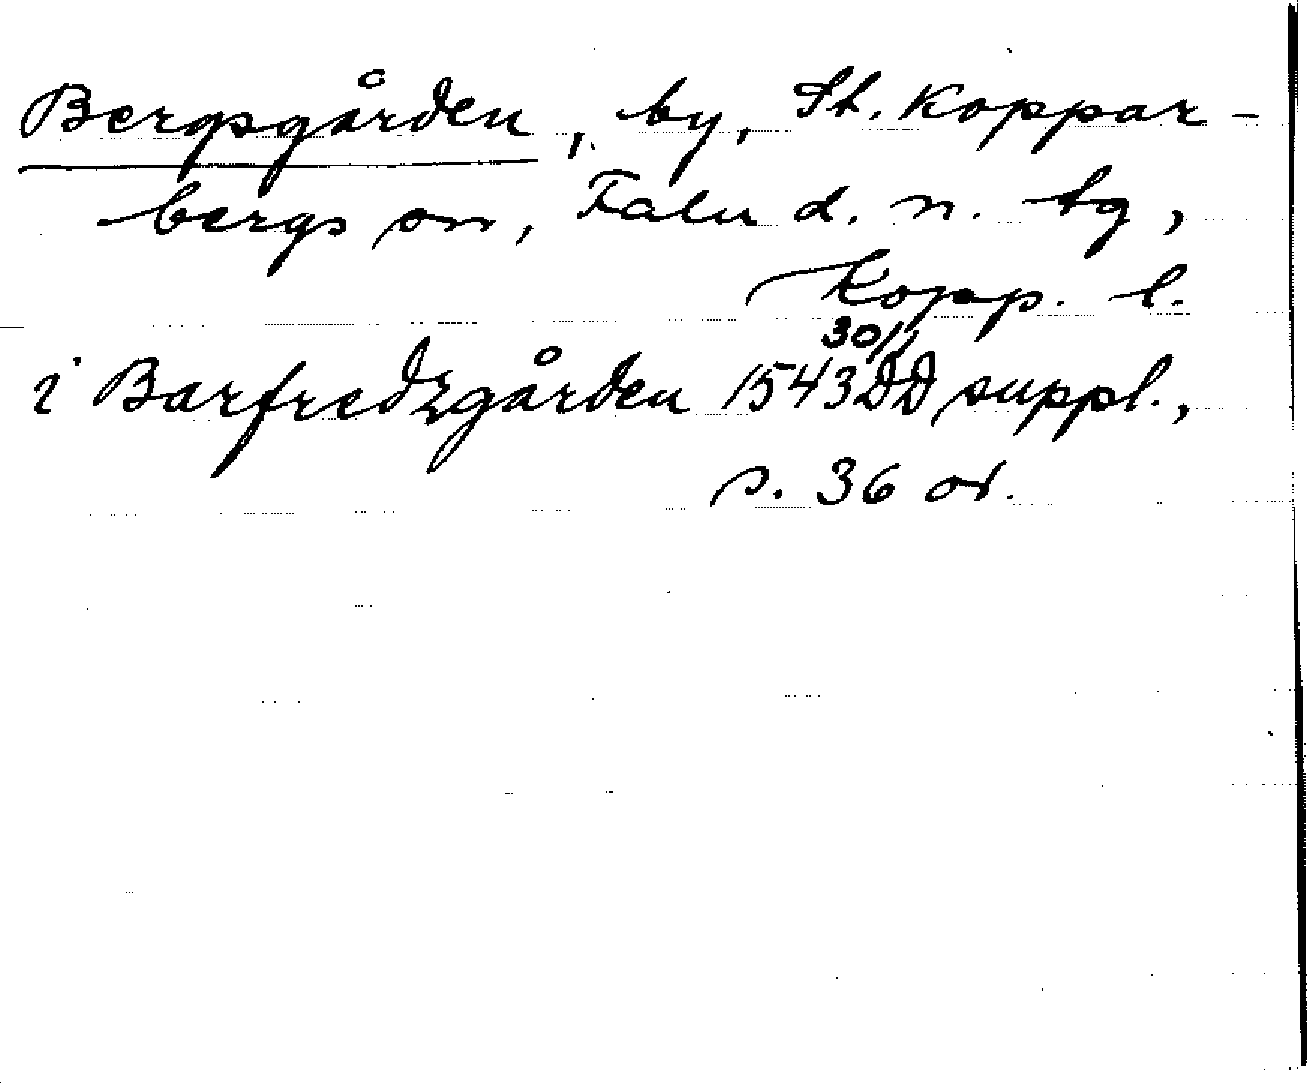 Bergsgården, by, St. Koppar-
bergs sn, Falu d. n. tg,
Kopp. l.
30/1
i Barfredzgården 1543 DD suppl.,
s. 36 or.